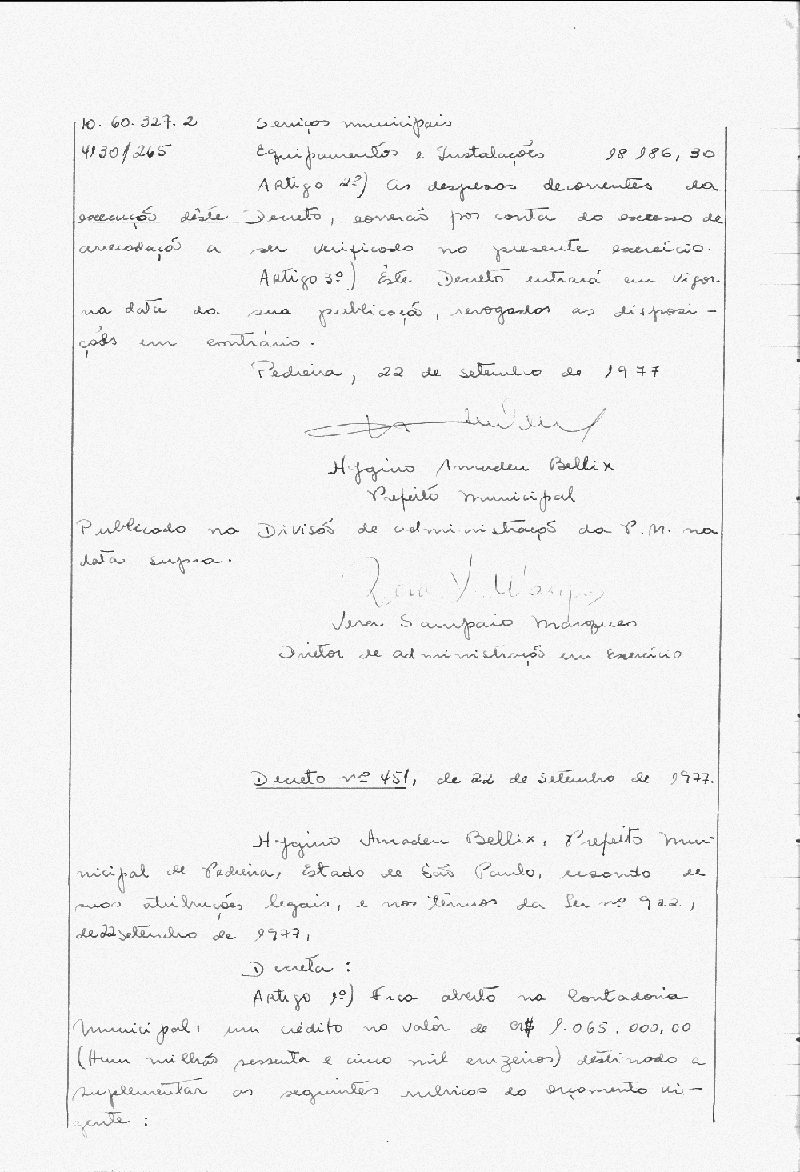 10.60.327.2 Serviços municipais
4130/265 Equipamentos e Instalações 18 186,30
Artigo 2º) As despesas decorrentes da
execução dêste Decreto, correrão por conta do excesso de
arrecadação a ser verificado no presente exercício.
Artigo 3º) Êste Decreto entrará em vigor
na data da sua publicação, revogadas as disposi-
ções em contrário.
Pedreira, 22 de setembro de 1977
Hygino Amadeu Bellix
Prefeito Municipal
Publicado na Divisão de administração da P.M. na
data supra.
Vera Sampaio Marques
Diretor de administração em Exercício
Decreto nº 451, de 22 de setembro de 1977.
Hygino Amadeu Bellix, Prefeito Mu-
nicipal de Pedreira, Estado de São Paulo, usando de
suas atribuições legais, e nos têrmos da Lei nº 922,
de 22 setembro de 1977,
Decreta:
Artigo 1º) Fica aberto na Contadoria
Municipal, um crédito no valôr de CR$ 1.065.000,00
(Hum milhão sessenta e cinco mil cruzeiros) destinado a
suplementar as seguintes rubricas do orçamento vi-
gente: